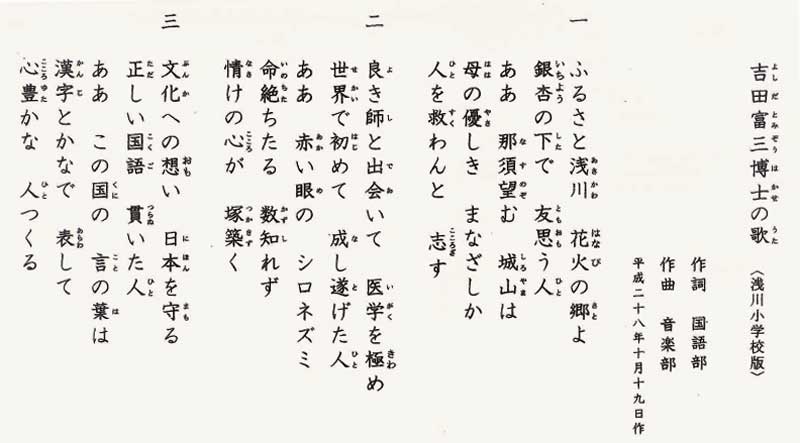 吉田富三博士の歌 〈浅川小学校版〉
作詞 国語部
作曲 音楽部
平成二十八年十月十九日作
一
ふるさと浅川 花火の郷よ
銀杏の下で 友思う人
ああ 那須望む 城山は
母の優しき まなざしか
人を救わんと 志す
二
良き師と出会いて 医学を極め
世界で初めて 成し遂げた人
ああ 赤い眼の シロネズミ
命絶ちたる 数知れず
情けの心が 塚築く
三
文化への想い 日本を守る
正しい国語 貫いた人
ああ この国の 言の葉は
漢字とかなで 表して
心豊かな 人つくる